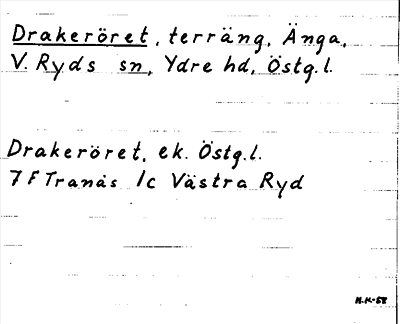 Drakeröret, terräng, Änga,
V. Ryds sn, Ydre hd, Östg.l.
Drakeröret, ek. Östg.l.
7F Tranås 1c Västra Ryd
H.K-58